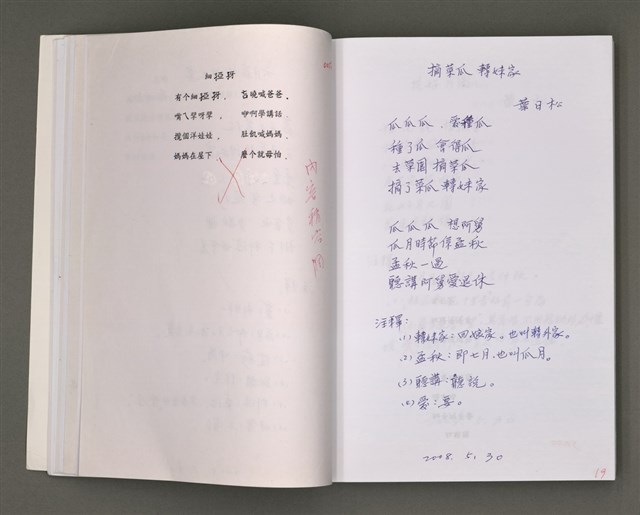 細𢯭䎛
有个細𢯭䎛， 吂曉喊爸爸，
嘴乁擘呀擘， 咿呵學講話，
攬個洋娃娃， 肚飢喊媽媽，
媽媽在屋下 麼个就毋怕，
摘菜瓜 轉妹家
葉日松
瓜瓜瓜 愛種瓜
種了瓜 會得瓜
去菜園 摘菜瓜
摘了菜瓜 轉妹家
瓜瓜瓜 想阿舅
瓜月時節係孟秋
孟秋一過
聽講阿舅愛退休
注釋：
(1)轉妹家：回娘家。也叫轉外家。
(2)孟秋：即七月，也叫瓜月。
(3)聽講：聽說。
(4)愛：要。
2008.5.30
19